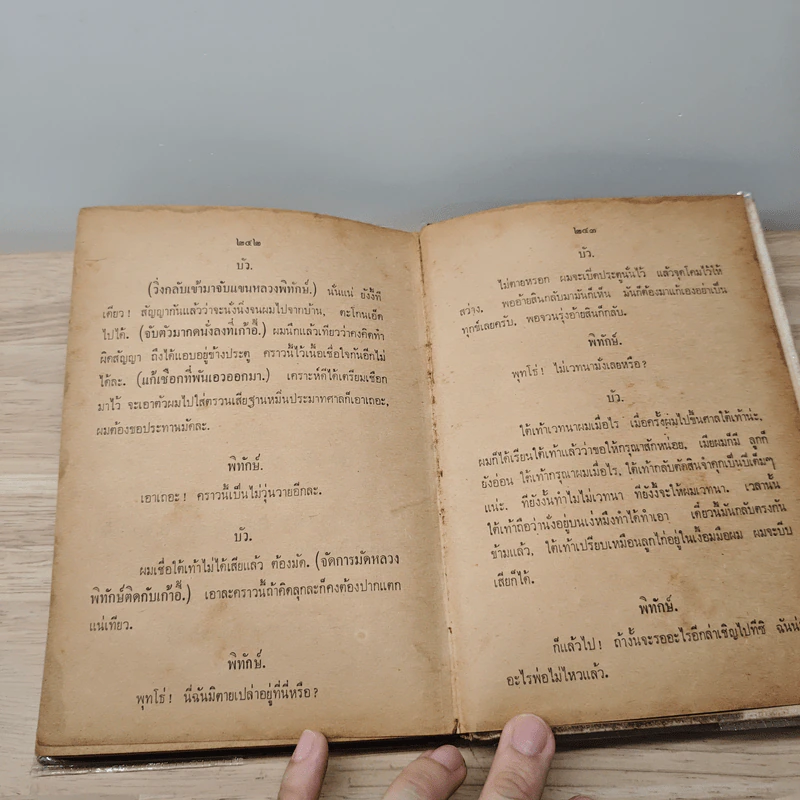 ๒๔๒
บัว.
(วิ่งกลับเข้ามาจับแขนหลวงพิทักษ์.) นั่นแน่ ยังงี้ที
เดียว! สัญญากันแล้วว่าจะนั่งนิ่งจนผมไปจากบ้าน, ตะโกนเอ็ด
ไปได้. (จับตัวมากดนั่งลงที่เก้าอี้.) ผมนึกแล้วเทียวว่าคงคิดทำ
ผิดสัญญา ถึงได้แอบอยู่ข้างประตู คราวนี้ไว้เนื้อเชื่อใจกันอีกไม่
ได้ละ. (แก้เชือกที่พันเอวออกมา.) เคราะห์ดีได้เตรียมเชือก
มาไว้ จะเอาตัวผมไปใส่ตรวนเสียฐานหมิ่นประมาทศาลก็เอาเถอะ,
ผมต้องขอประทานมัดละ.
พิทักษ์.
เอาเถอะ! คราวนี้เป็นไม่วุ่นวายอีกละ.
บัว.
ผมเชื่อใต้เท้าไม่ได้เสียแล้ว ต้องมัด. (จัดการมัดหลวง
พิทักษ์ติดกับเก้าอี้.) เอาละคราวนี้ถ้าคิดลุกละก็คงต้องปากแตก
แน่เทียว.
พิทักษ์.
พุทโธ่! นี่ฉันมิตายเปล่าอยู่ที่นี่หรือ?
๒๔๓
บัว.
ไม่ตายหรอก ผมจะเปิดประตูนั่นไว้ แล้วจุดโคมไว้ให้
สว่าง. พออ้ายสินกลับมามันก็เห็น มันก็ต้องมาแก้เองอย่าเป็น
ทุกข์เลยครับ. พอจวนรุ่งอ้ายสินก็กลับ.
พิทักษ์.
พุทโธ่! ไม่เวทนามั่งเลยหรือ?
บัว.
ใต้เท้าเวทนาผมเมื่อไร เมื่อครั้งผมไปขึ้นศาลใต้เท้าน่ะ,
ผมก็ได้เรียนใต้เท้าแล้วว่าขอให้กรุณาสักหน่อย, เมียผมก็มี ลูกก็
ยังอ่อน ใต้เท้ากรุณาผมเมื่อไร, ใต้เท้ากลับตัดสินจำคุกเป็นปีเต็มๆ
แน่ะ. ทียังงั้นทำไมไม่เวทนา ทียังงี้จะให้ผมเวทนา. เวลานั้น
ใต้เท้าถือว่านั่งอยู่บนเก่งหมึงทำได้ทำเอา เดี๋ยวนี้มันกลับตรงกัน
ข้ามแล้ว, ใต้เท้าเปรียบเหมือนลูกไก่อยู่ในเงื้อมมือผม ผมจะบีบ
เสียก็ได้.
พิทักษ์.
ก็แล้วไป! ถ้างั้นจะรออะไรอีกล่าเชิญไปทีซิ
อะไรพ่อไม่ไหวแล้ว.